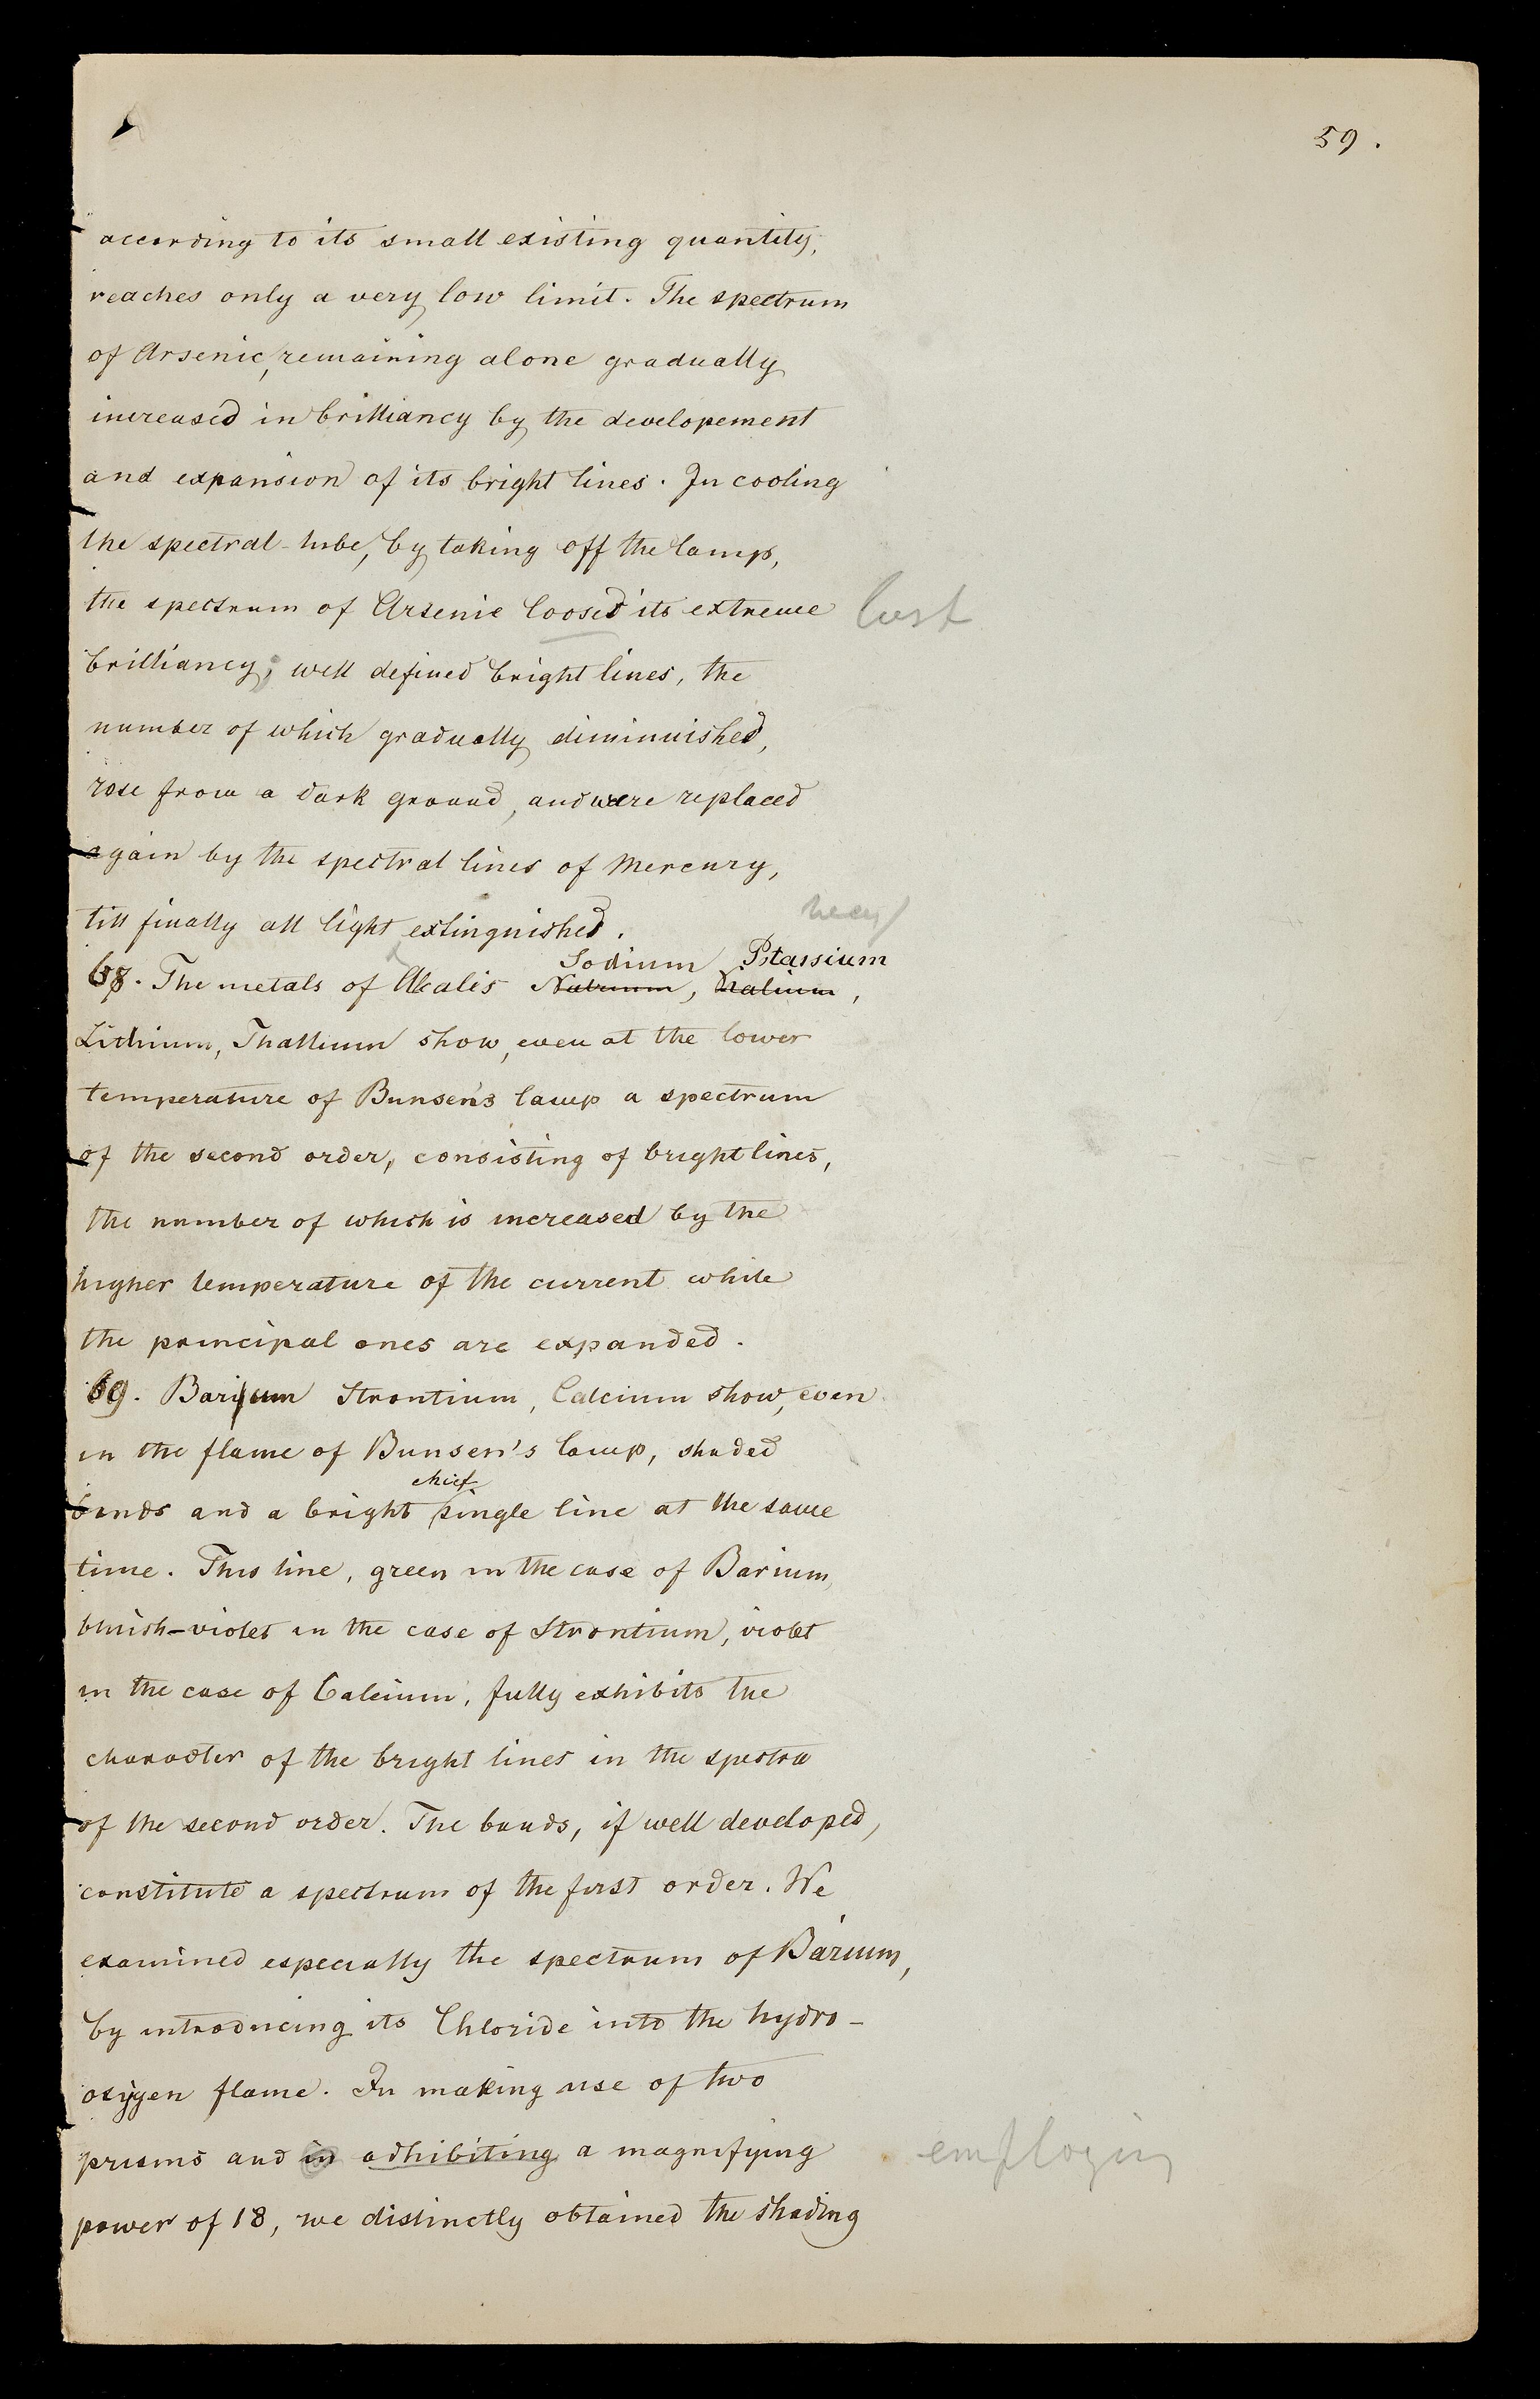 59.
according to its small existing quantity,
reaches only a very low limit. The spectrum
of Arsenic, remaining alone gradually
increased in brilliancy by the developement
and expansion of its bright lines. In cooling
the spectral-tube, by taking off the lamp,
the spectrum of Arsenic loosed its extreme lost
brilliancy; well defined bright lines, the
number of which gradually diminuished,
rose from a dark ground, and were replaced
again by the spectral lines of Mercury,
till finally all light extinguished.
Sodium Potassium
68. The metals of Alcalis Natrium, Kalium,
Lithium, Thallium show, even at the lower
temperature of Bunsen's lamp a spectrum
of the second order, consisting of bright lines,
the number of which is increased by the
higher temperature of the current while
the principal ones are expanded.
69. Barium Strontium, Calcium show, even
in the flame of Bunsen's lamp, shaded
chief
bands and a bright single line at the same
time. This line, green in the case of Barium,
bluish-violet in the case of Strontium, violet
in the case of Calcium, fully exhibits the
character of the bright lines in the spectra
of the second order. The bands, if well developed,
constitute a spectrum of the first order. We
examined especially the spectrum of Barium,
by introducing its Chloride into the hydro-
oxygen flame. In making use of two
prisms and in adhibiting a magnifying employing
power of 18, we distinctly obtained the shading